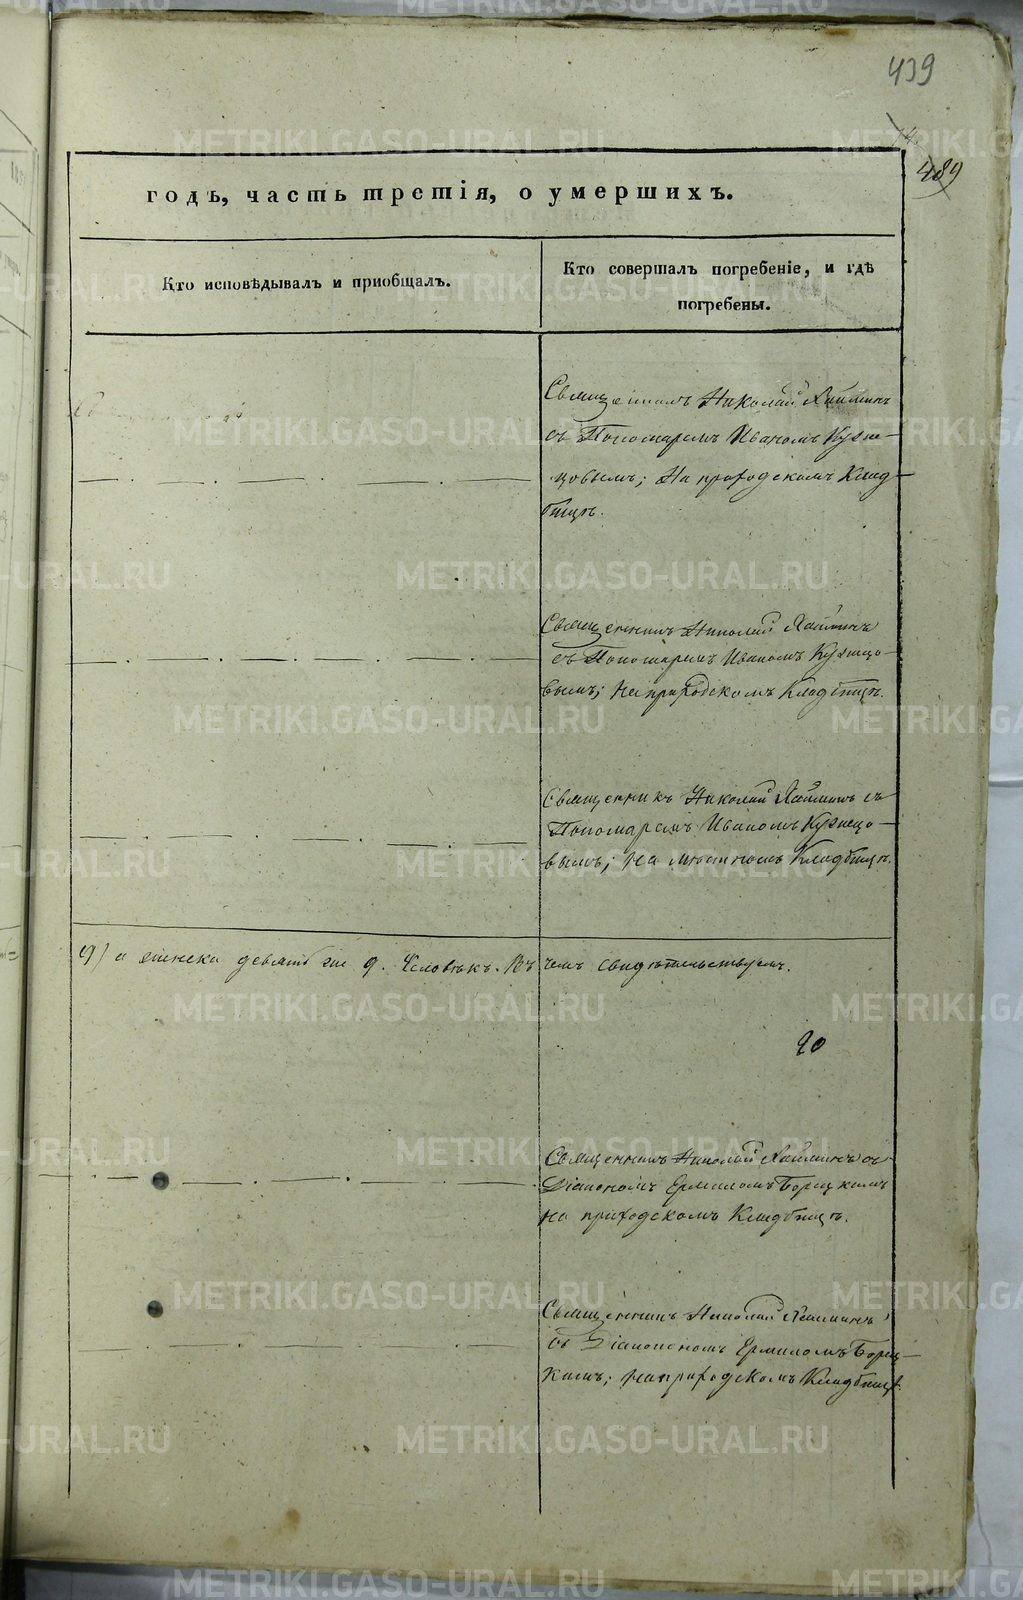 439
489
годъ, часть третія, о умершихъ.
Кто исповѣдывалъ и приобщалъ.
Кто совершалъ погребеніе, и гдѣ
погребены.
Священникъ Николай
съ Пономаремъ Иваномъ Кузне-
цовымъ; На приходскомъ Клад-
бищѣ.
Священникъ Николай
съ Пономаремъ Иваномъ Кузнецо-
вымъ; На приходскомъ Кладбищѣ.
Священникъ Николай съ
Пономаремъ Иваномъ Кузнецо-
вымъ; На Кладбищѣ.
9) а женска девять 9. Человѣкъ. Въ чемъ свидѣтельствуемъ.
20
Священникъ Николай съ
Діакономъ Ермиломъ Борецкимъ
На приходскомъ Кладбищѣ.
Священникъ Николай
съ Діакономъ Ермиломъ Борец-
кимъ; На приходскомъ Кладбищѣ
METRIKI.GASO-URAL.RU